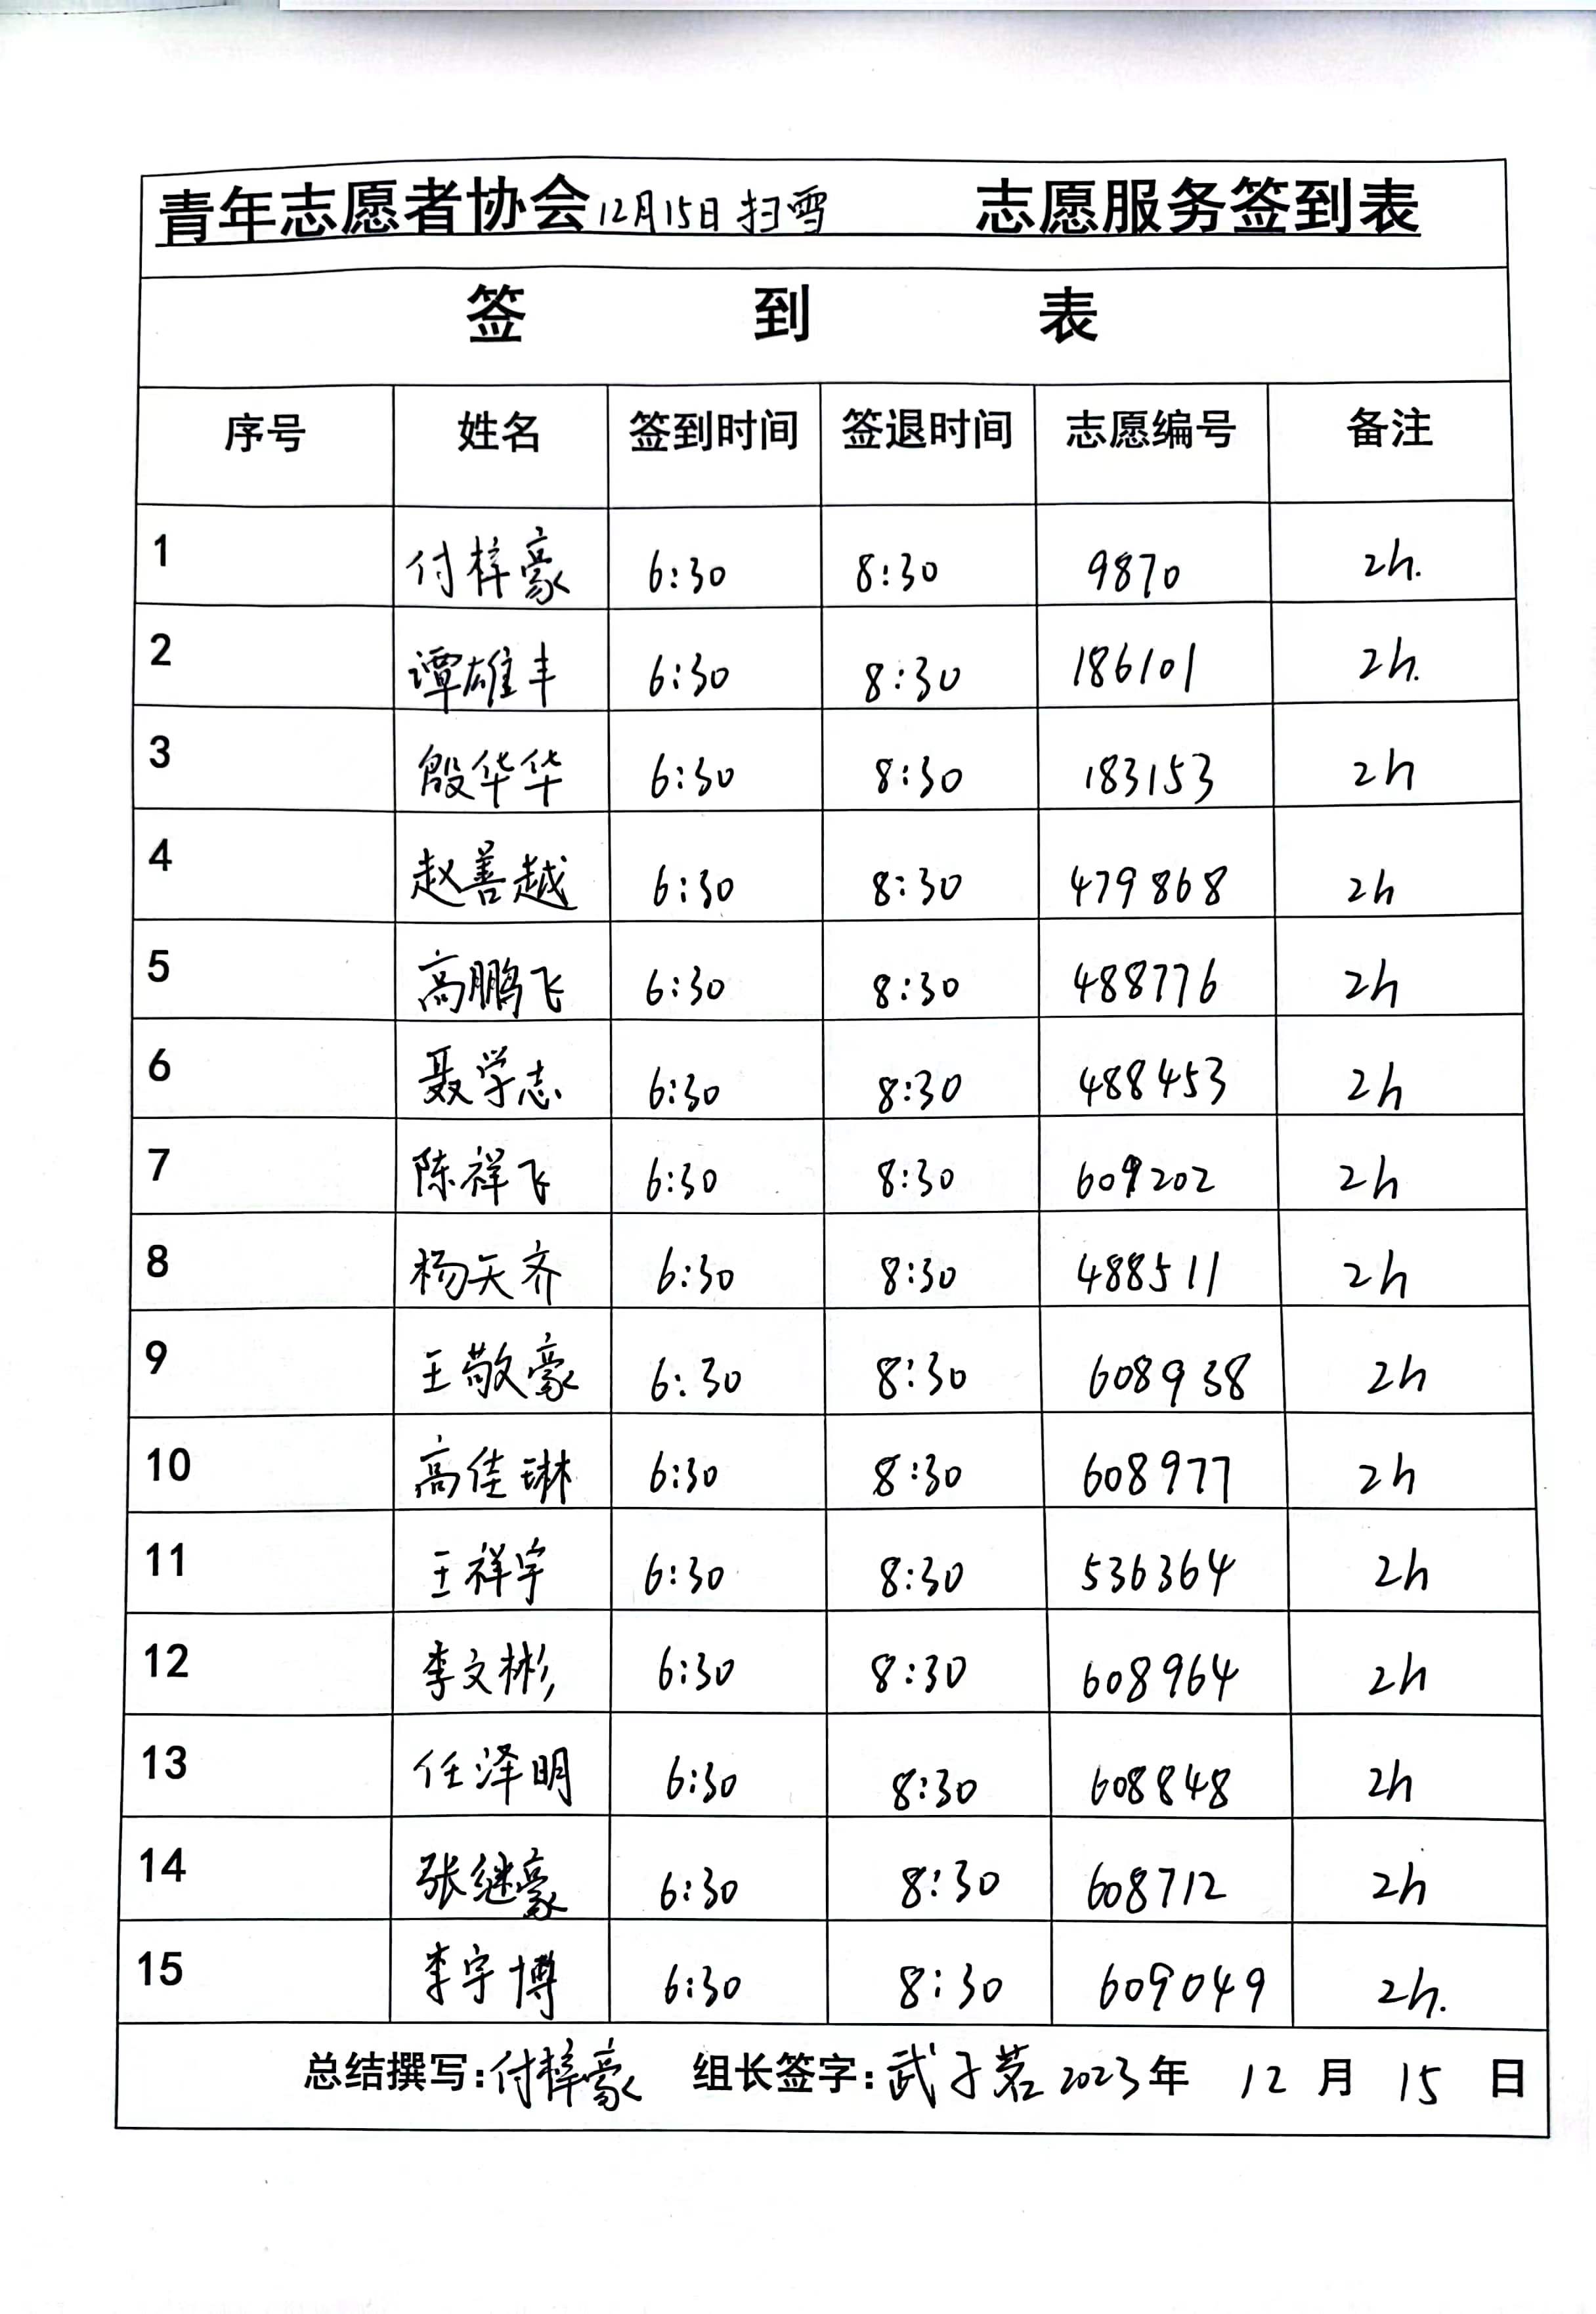 青年志愿者协会12月15日扫雪 志愿服务签到表
签 到 表
序号 姓名 签到时间 签退时间 志愿编号 备注
1 付梓豪 6:30 8:30 9870 2h.
2 谭雄丰 6:30 8:30 186101 2h.
3 殷华华 6:30 8:30 183153 2h
4 赵善越 6:30 8:30 479868 2h
5 高鹏飞 6:30 8:30 488776 2h
6 聂学志 6:30 8:30 488453 2h
7 陈祥飞 6:30 8:30 609202 2h
8 杨天齐 6:30 8:30 488511 2h
9 王敬豪 6:30 8:30 608938 2h
10 高佳琳 6:30 8:30 608977 2h
11 王祥宇 6:30 8:30 536364 2h
12 李文彬 6:30 8:30 608964 2h
13 任泽明 6:30 8:30 608848 2h
14 张继豪 6:30 8:30 608712 2h
15 李宇博 6:30 8:30 609049 2h.
总结撰写:付梓豪 组长签字:武子茗 2023年 12 月 15 日